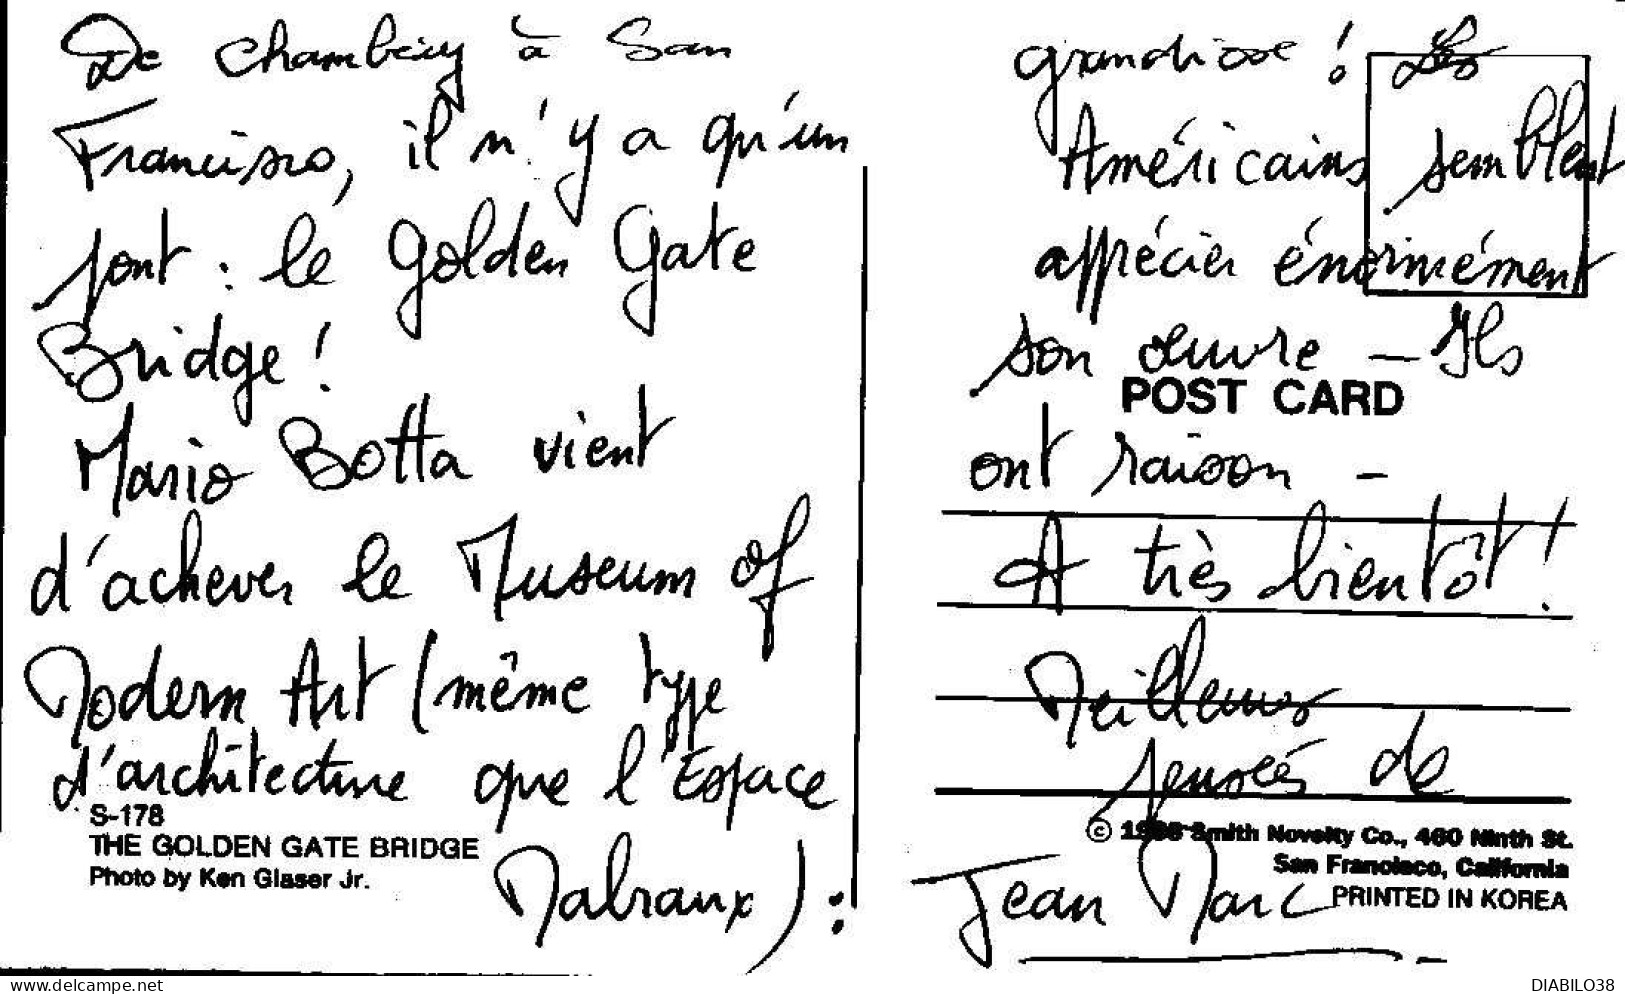 De Chambéry à San
Francisco, il n'y a qu'un
pont : le Golden Gate
Bridge !
Mario Botta vient
d'achever le Museum of
Modern Art (même type
d'architecture que l'Espace
Malraux) :
S-178
THE GOLDEN GATE BRIDGE
Photo by Ken Glaser Jr.
grandiose ! Les
Américains semblent
apprécier énormément
son œuvre — Ils
POST CARD
ont raison -
A très bientôt !
Meilleures
pensées de
© Smith Novelty Co., 460 Ninth St.
San Francisco, California
PRINTED IN KOREA
Jean Marc
www.delcampe.net
DIABILO38